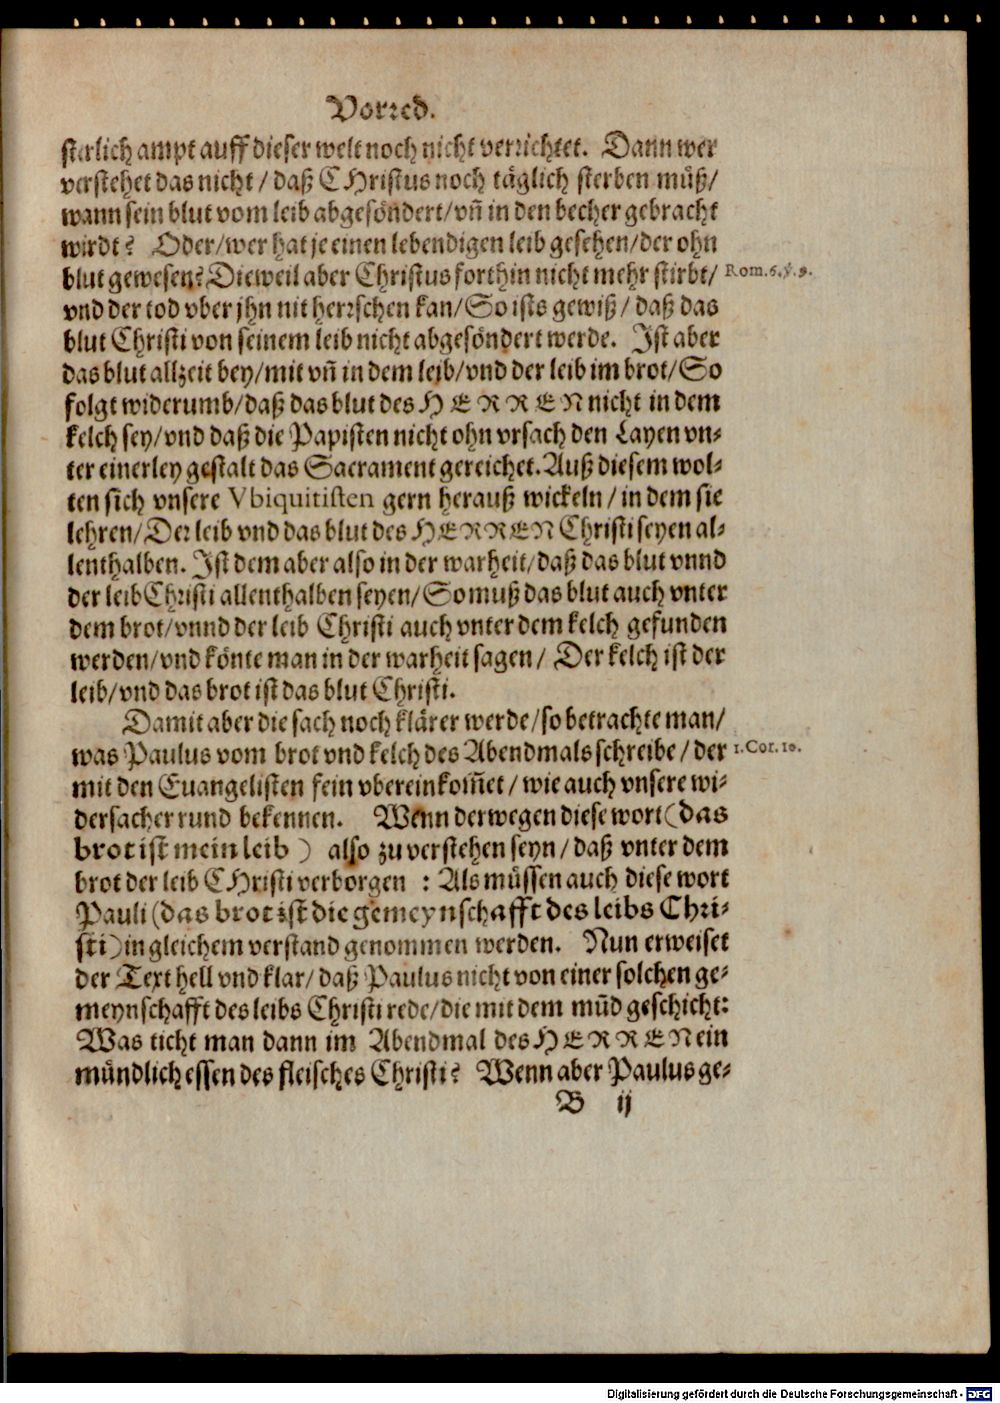 Vorred.
sterlich ampt auff dieser welt noch nicht verrichtet. Dann wer
verstehet das nicht / daß CHristus noch täglich sterben müß/
wann sein blut vom leib abgesöndert/vñ in den becher gebracht
wirdt? Oder/wer hat je einen lebendigen leib gesehen/der ohn
blut gewesen? Dieweil aber Christus forthin nicht mehr stirbt/ Rom.6.℣.9.
vnd der tod vber jhn nit herrschen kan/So ists gewiß / daß das
blut Christi von seinem leib nicht abgesöndert werde. Ist aber
das blut allzeit bey/mit vñ in dem leib/vnd der leib im brot/So
folgt widerumb/daß das blut des HERREN nicht in dem
kelch sey/vnd daß die Papisten nicht ohn vrsach den Layen vn⸗
ter einerley gestalt das Sacrament gereichet. Auß diesem wol⸗
ten sich vnsere Vbiquitisten gern herauß wickeln / in dem sie
lehren/Der leib vnd das blut des HERREN Christi seyen al⸗
lenthalben. Ist dem aber also in der warheit/daß das blut vnnd
der leib Christi allenthalben seyen/So muß das blut auch vnter
dem brot/vnnd der leib Christi auch vnter dem kelch gefunden
werden/vnd könte man in der warheit sagen / Der kelch ist der
leib/vnd das brot ist das blut Christi.
Damit aber die sach noch klärer werde/so betrachte man/
was Paulus vom brot vnd kelch des Abendmals schreibe / der 1.Cor.10.
mit den Euangelisten fein vbereinkom̃et / wie auch vnsere wi⸗
dersacher rund bekennen. Wenn derwegen diese wort (das
brot ist mein leib) also zu verstehen seyn / daß vnter dem
brot der leib CHristi verborgen : Als müssen auch diese wort
Pauli (das brot ist die gemeynschafft des leibs Chri⸗
sti) in gleichem verstand genommen werden. Nun erweiset
der Text hell vnd klar/ daß Paulus nicht von einer solchen ge⸗
meynschafft des leibs Christi rede/die mit dem mũd geschicht:
Was ticht man dann im Abendmal des HERREN ein
mündlich essen des fleisches Christi? Wenn aber Paulus ge⸗
B ij
Digitalisierung gefördert durch die Deutsche Forschungsgemeinschaft - DFG